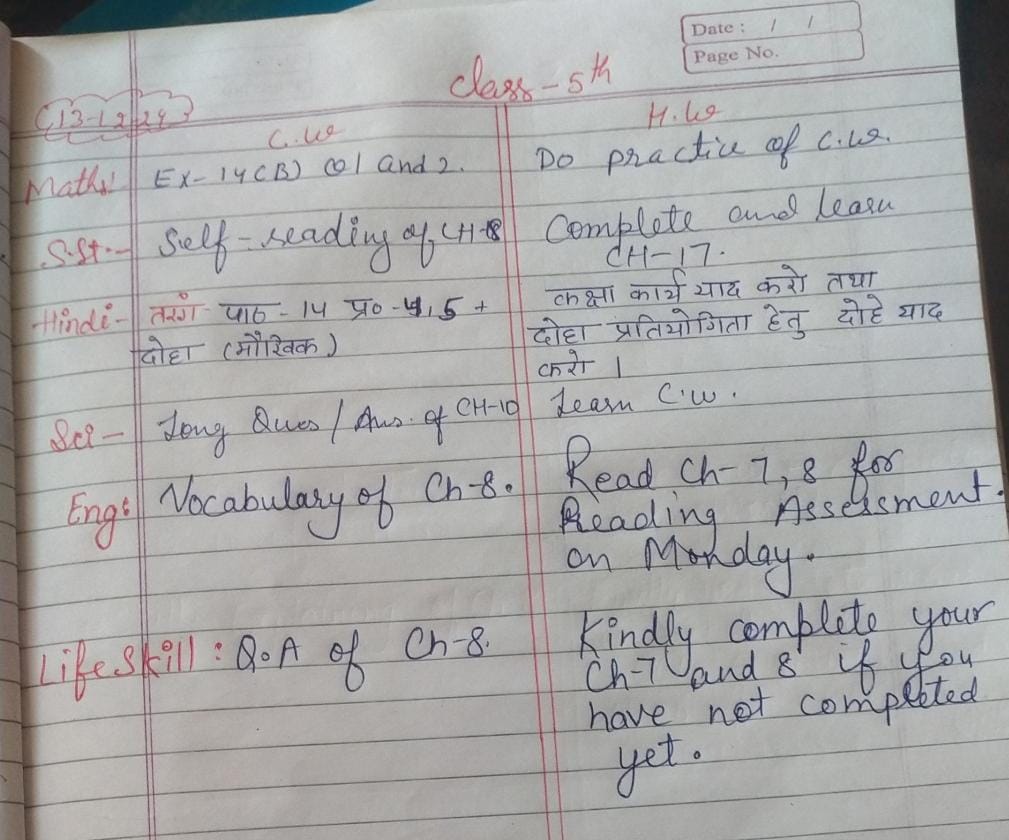 Date : / /
Page No.
Class - 5th
13-12-24
C.W
H.W
Maths: Ex- 14(B) Q1 and 2.
Do practice of C.W.
S.St.- Self-reading of CH-18
Complete and learn
CH-17.
Hindi- तरंग पाठ - 14 प्र० - 4,5 +
दोहा (मौखिक)
कक्षा कार्य याद करो तथा
दोहा प्रतियोगिता हेतु दोहे याद
करो ।
Sci- Long Ques / Ans. of CH-10
Learn C.W.
Eng: Vocabulary of Ch-8.
Read Ch- 7, 8 for
Reading Assessment.
on Monday.
Life Skill: Q.A of Ch-8.
Kindly complete your
Ch-7 and 8 if you
have not completed
yet.